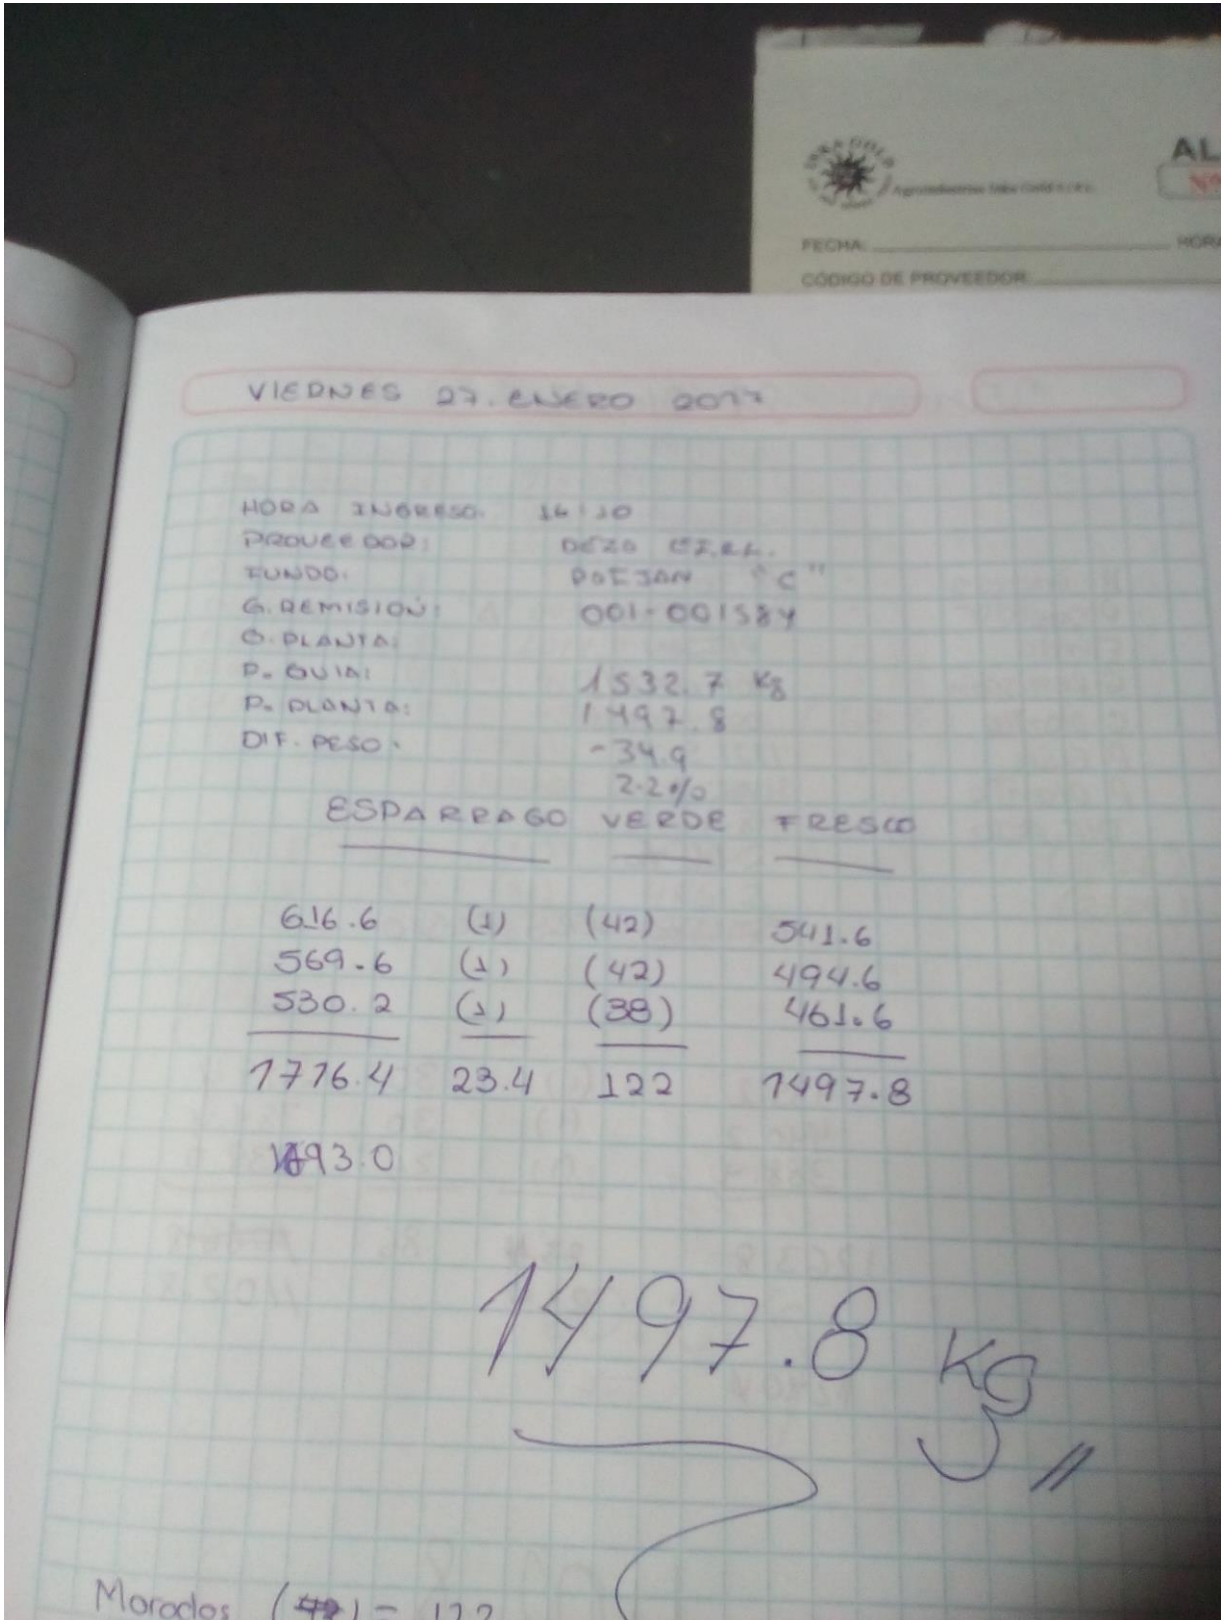 AL
Nº
Agroindustrias Inka Gold
FECHA: HORA
CODIGO DE PROVEEDOR
VIERNES 27. ENERO 2017
HORA INGRESO: 16:10
PROVEEDOR: DEZO E.I.R.L.
FUNDO: "C"
G. REMISION: 001-001584
G. PLANTA:
P. GUIA: 1532.7 Kg
P. PLANTA: 1497.8
DIF. PESO. -34.9
2.2%
ESPARRAGO VERDE FRESCO
616.6 (1) (42) 541.6
569.6 (1) (42) 494.6
530.2 (1) (38) 461.6
1716.4 23.4 122 1497.8
93.0
1497.8 Kg
Morados = 122